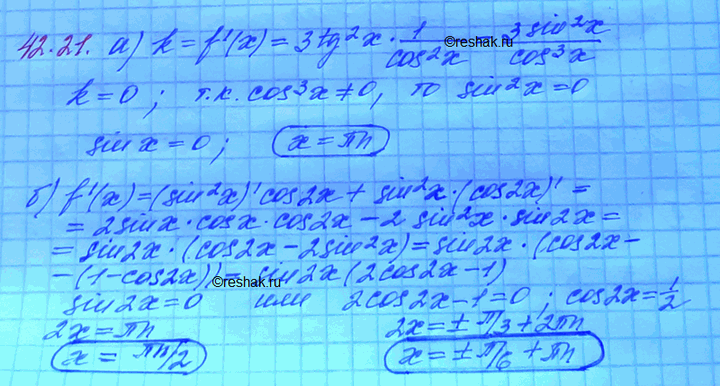 42.21. а) k = f'(x) = 3tg²x · 1/cos²x = 3sin²x/cos³x
©reshak.ru
k = 0; т.к. cos³x ≠ 0, то sin²x = 0
sin x = 0; x = πn
б) f'(x) = (sin²x)' cos2x + sin²x · (cos2x)' =
= 2sinx · cosx · cos2x - 2 sin²x · sin2x =
= sin2x · (cos2x - 2sin²x) = sin2x · (cos2x -
- (1 - cos2x)) = sin2x (2cos2x - 1)
©reshak.ru
sin2x = 0 или 2cos2x - 1 = 0; cos2x = 1/2
2x = πn 2x = ± π/3 + 2πn
x = πn/2 x = ± π/6 + πn